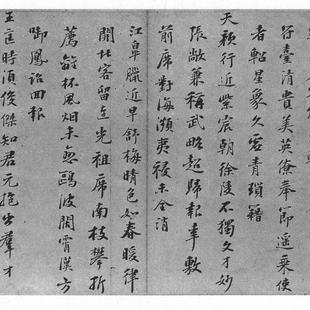 行臺清貴美英僚奉節遥乗使
者軺星象久虚青瑣籍
天顔行近紫宸朝徐陵不獨文才妙
張敞兼稱武略超歸報奉敷
前席對海瀕夷祲未全消
江皐臘近早舒梅晴色如春暖律
開客留光祖席南枝攀折
薦離杯風烟未鷗波闊霄漢方
啣鳳詔回報
王匡時須俊傑知君元抱出羣才